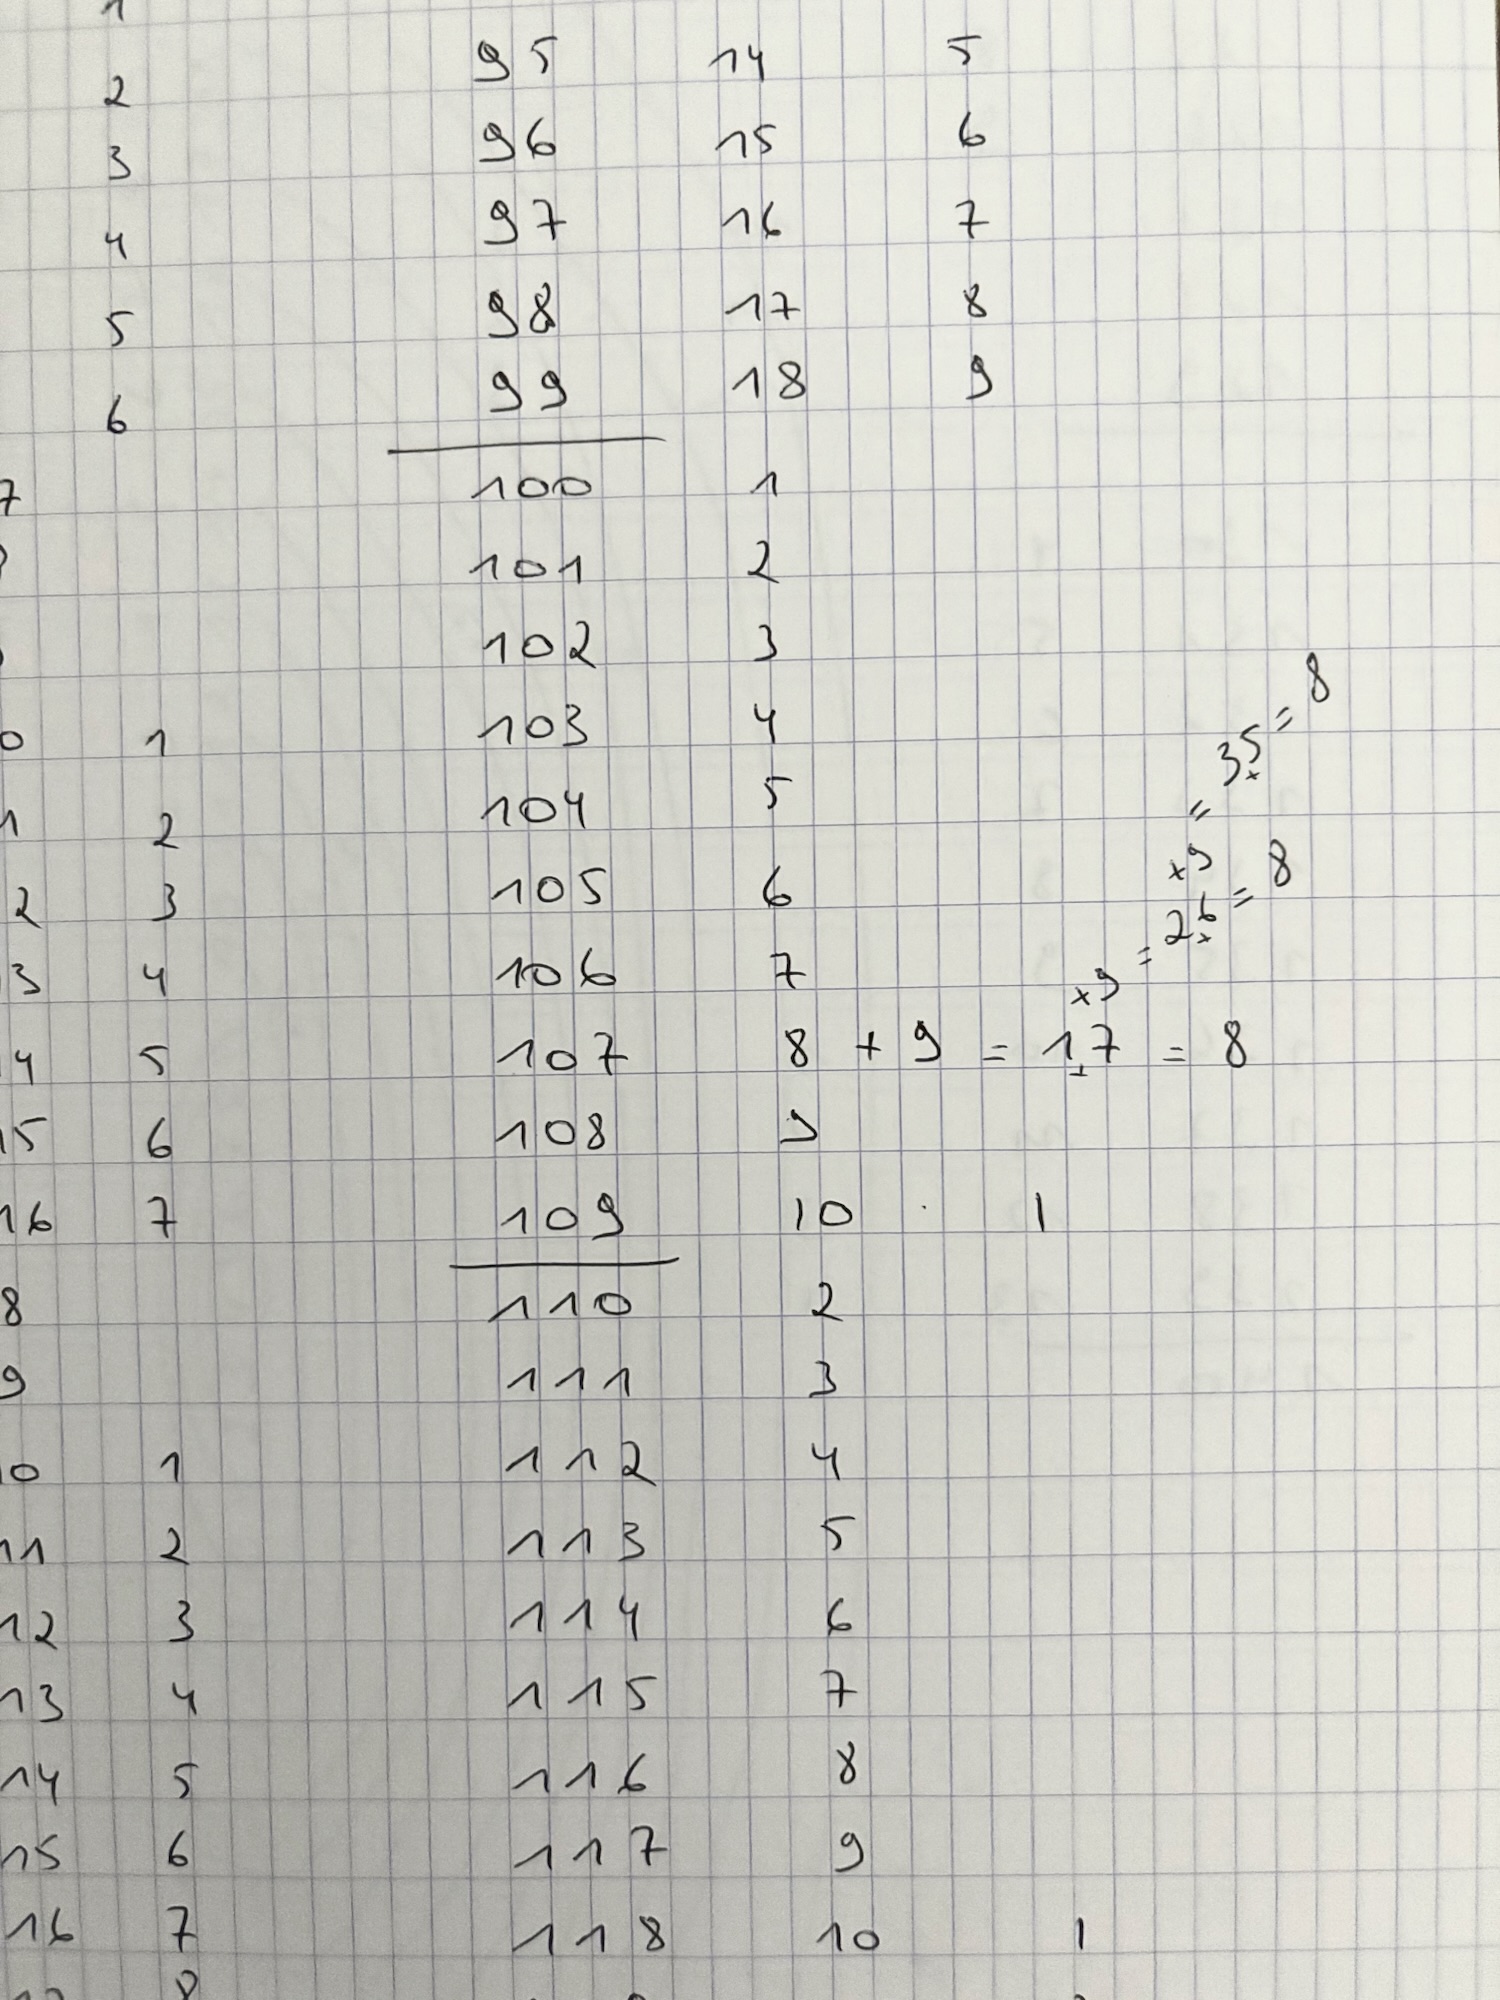 1
95 14 5
2
96 15 6
3
97 16 7
4
98 17 8
5
99 18 9
6
7 100 1
101 2
102 3
0 1 103 4
1 2 104 5
2 3 105 6
3 4 106 7
4 5 107 8 + 9 = 17 = 8
+
x9 = 26 = 8
x
x9 = 35 = 8
x
15 6 108 9
16 7 109 10 1
8 110 2
9 111 3
0 1 112 4
11 2 113 5
12 3 114 6
13 4 115 7
14 5 116 8
15 6 117 9
16 7 118 10 1
8